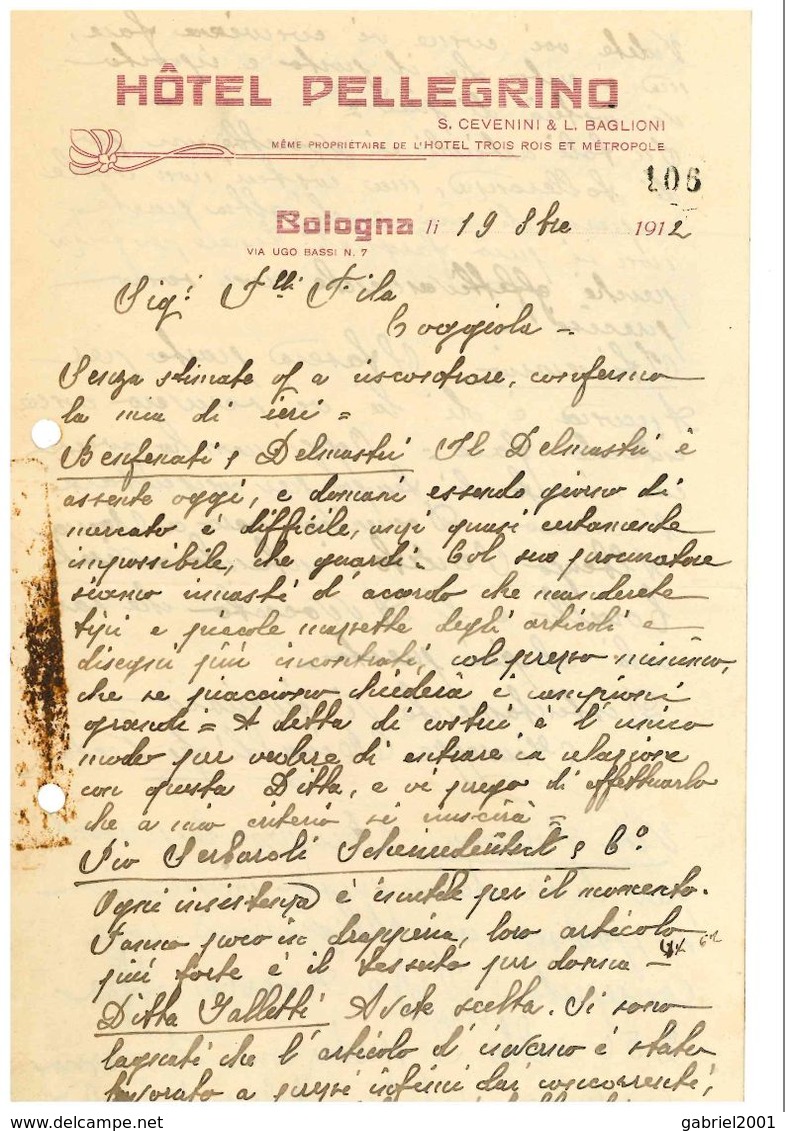 HÔTEL PELLEGRINO
S. CEVENINI & L. BAGLIONI
MÊME PROPRIÉTAIRE DE L'HOTEL TROIS ROIS ET MÉTROPOLE
106
Bologna li 19 8bre 1912
VIA UGO BASSI N. 7
Sig.i F.lli Fila
Coggiola =
Senza stimate of a riscontrare, confermo
la mia di ieri =
Benfenati & Delmastri Il Delmastri è
assente oggi, e domani essendo giorno di
mercato è difficile, anzi quasi certamente
impossibile, che guardi. Col suo procuratore
siamo rimasti d'acordo che manderete
tipi e piccole mazzette degli articoli e
disegni più incontrati, col prezzo minimo,
che se piacciono chiederà i campioni
grandi = A detta di costui è l'unico
modo per vedere di entrare in relazione
con questa Ditta, e vi prego di effettuarlo
che a mio criterio si riuscirà =
Pio Serbaroli & Cº
Ogni insistenza è inutile per il momento.
Fanno poco in drapperia, loro articolo
più forte è il tessuto per donna =
Ditta Galletti Avete scelta. Si sono
lagnati che l'articolo d'inverno è stato
lavorato a prezzi infimi dai concorrenti,
gabriel2001